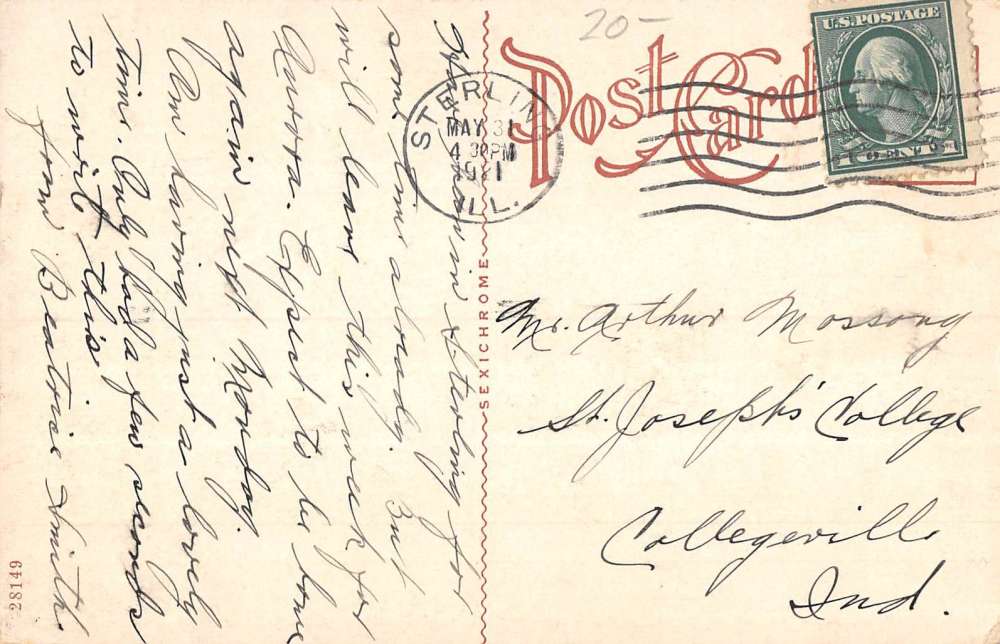 20-
Post Card
U.S. POSTAGE
1 CENT 1
STERLING
MAY 31
4 30 PM
1921
ILL.
Have been in Sterling for
some time already. But
will leave this week for
Aurora. Expect to be home
again next Monday.
Am having just a lovely
time. Only had a few seconds
to write this.
from Beatrice Smith.
SEXICHROME
Mr. Arthur Mossong
St. Joseph's College
Collegeville
Ind.
28149